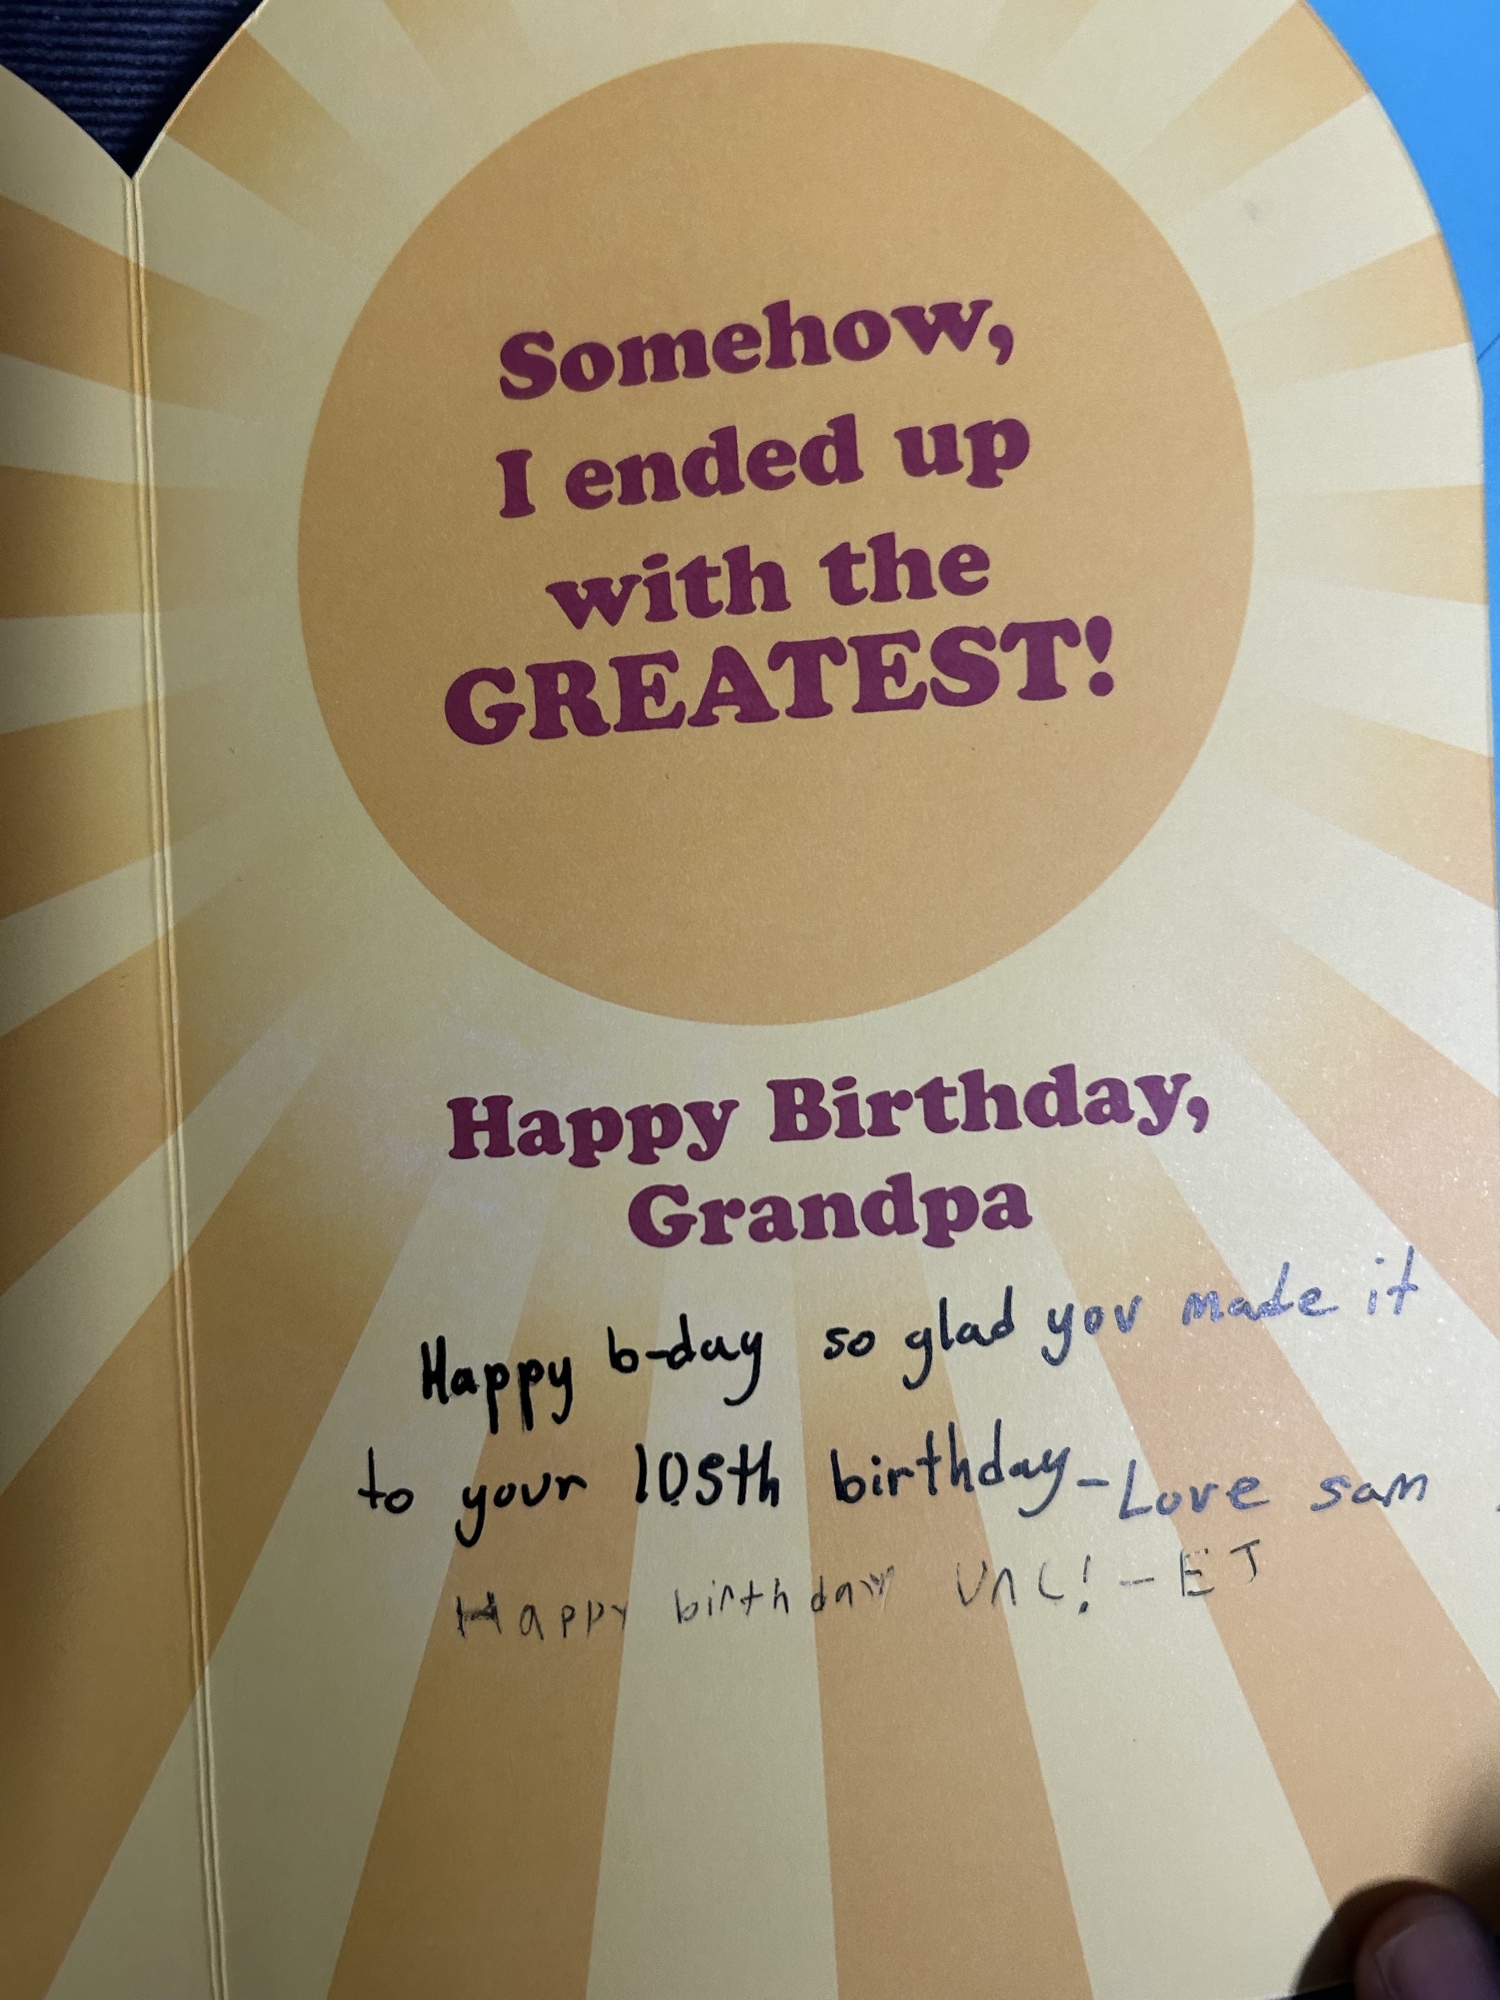 Somehow,
I ended up
with the
GREATEST!
Happy Birthday,
Grandpa
Happy b-day so glad you made it
to your 105th birthday-Love sam
Happy birthday UNC! - ET